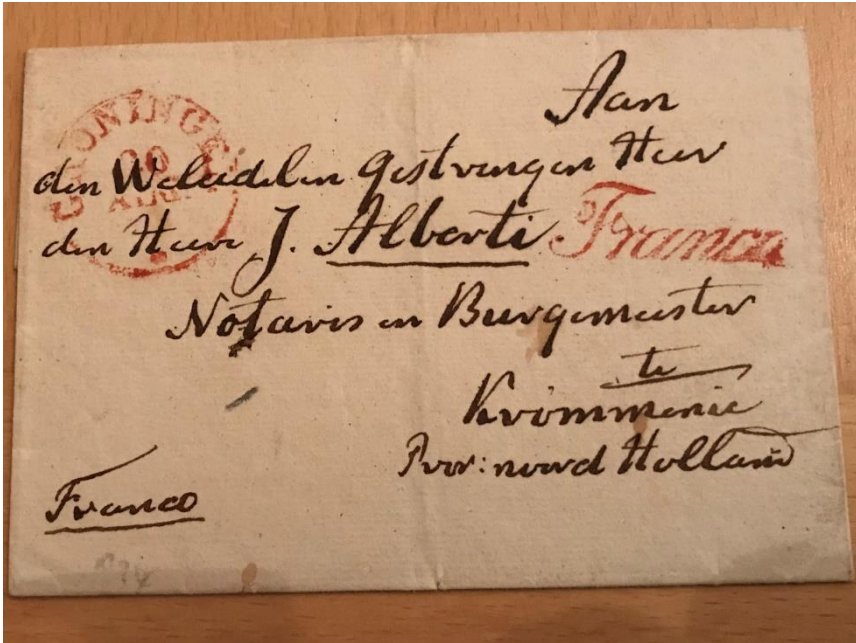 Aan
GRONINGEN
den Weleedelen Gestrengen Heer
den Heere J. Alberti Franco
Notaris en Burgemeester
te
Krommenie
Prov: noord Holland
Franco